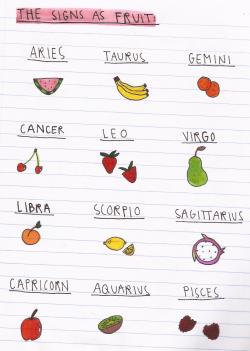 THE SIGNS AS FRUIT
ARIES TAURUS GEMINI
CANCER LEO VIRGO
LIBRA SCORPIO SAGITTARIUS
CAPRICORN AQUARIUS PISCES